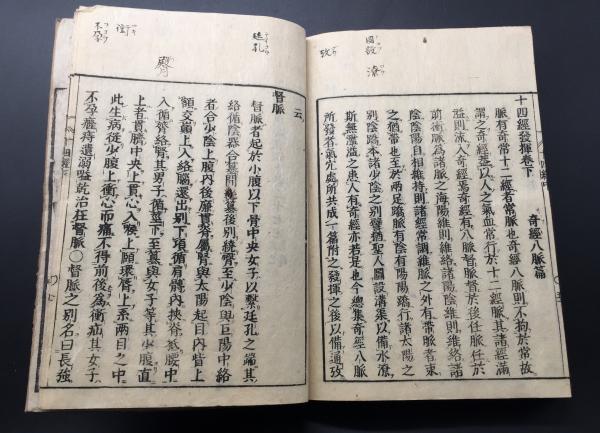 十四經發揮卷下
奇經八脈篇
脈有奇常十二經者常脈也奇經八脈則不拘於常故
謂之奇經蓋以人之氣血常行於十二經脈其諸經滿
溢則流入奇經焉奇經有八脈督脈督於後任脈任於
前衝脈為諸脈之海陽維則維絡諸陽陰維則維絡諸
陰陰陽自相維持則諸經常調維脈之外有帶脈者束
之猶帶也至於兩足蹻脈有陰有陽陽蹻行諸太陽之
別陰蹻本諸少陰之別譬猶聖人圖設溝渠以備水潦
斯無濫溢之患人有奇經亦若是也今總集奇經八脈
所發者氣穴處所共成一篇附之發揮之後以備通攷
云
督脈
督脈者起於小腹以下骨中央女子以繫廷孔之端其
絡循陰器合篡間繞篡後別繞臀至少陰與巨陽中絡
者合少陰上腹內後廉貫脊屬腎與太陽起目內眥上
額交巔上入絡腦還出別下項循肩髆內挾脊抵腰中
入者循膂絡腎其男子循莖下至篡與女子等其少腹直
上者貫臍中央上貫心入喉上頤環唇上系兩目之中
此生病從少腹上衝心而痛不得前後為衝疝其女子
不孕癃痔遺溺嗌乾治在督脈〇督脈之別名曰長強
圖設
潦
攷
廷孔
臀
衝
不孕